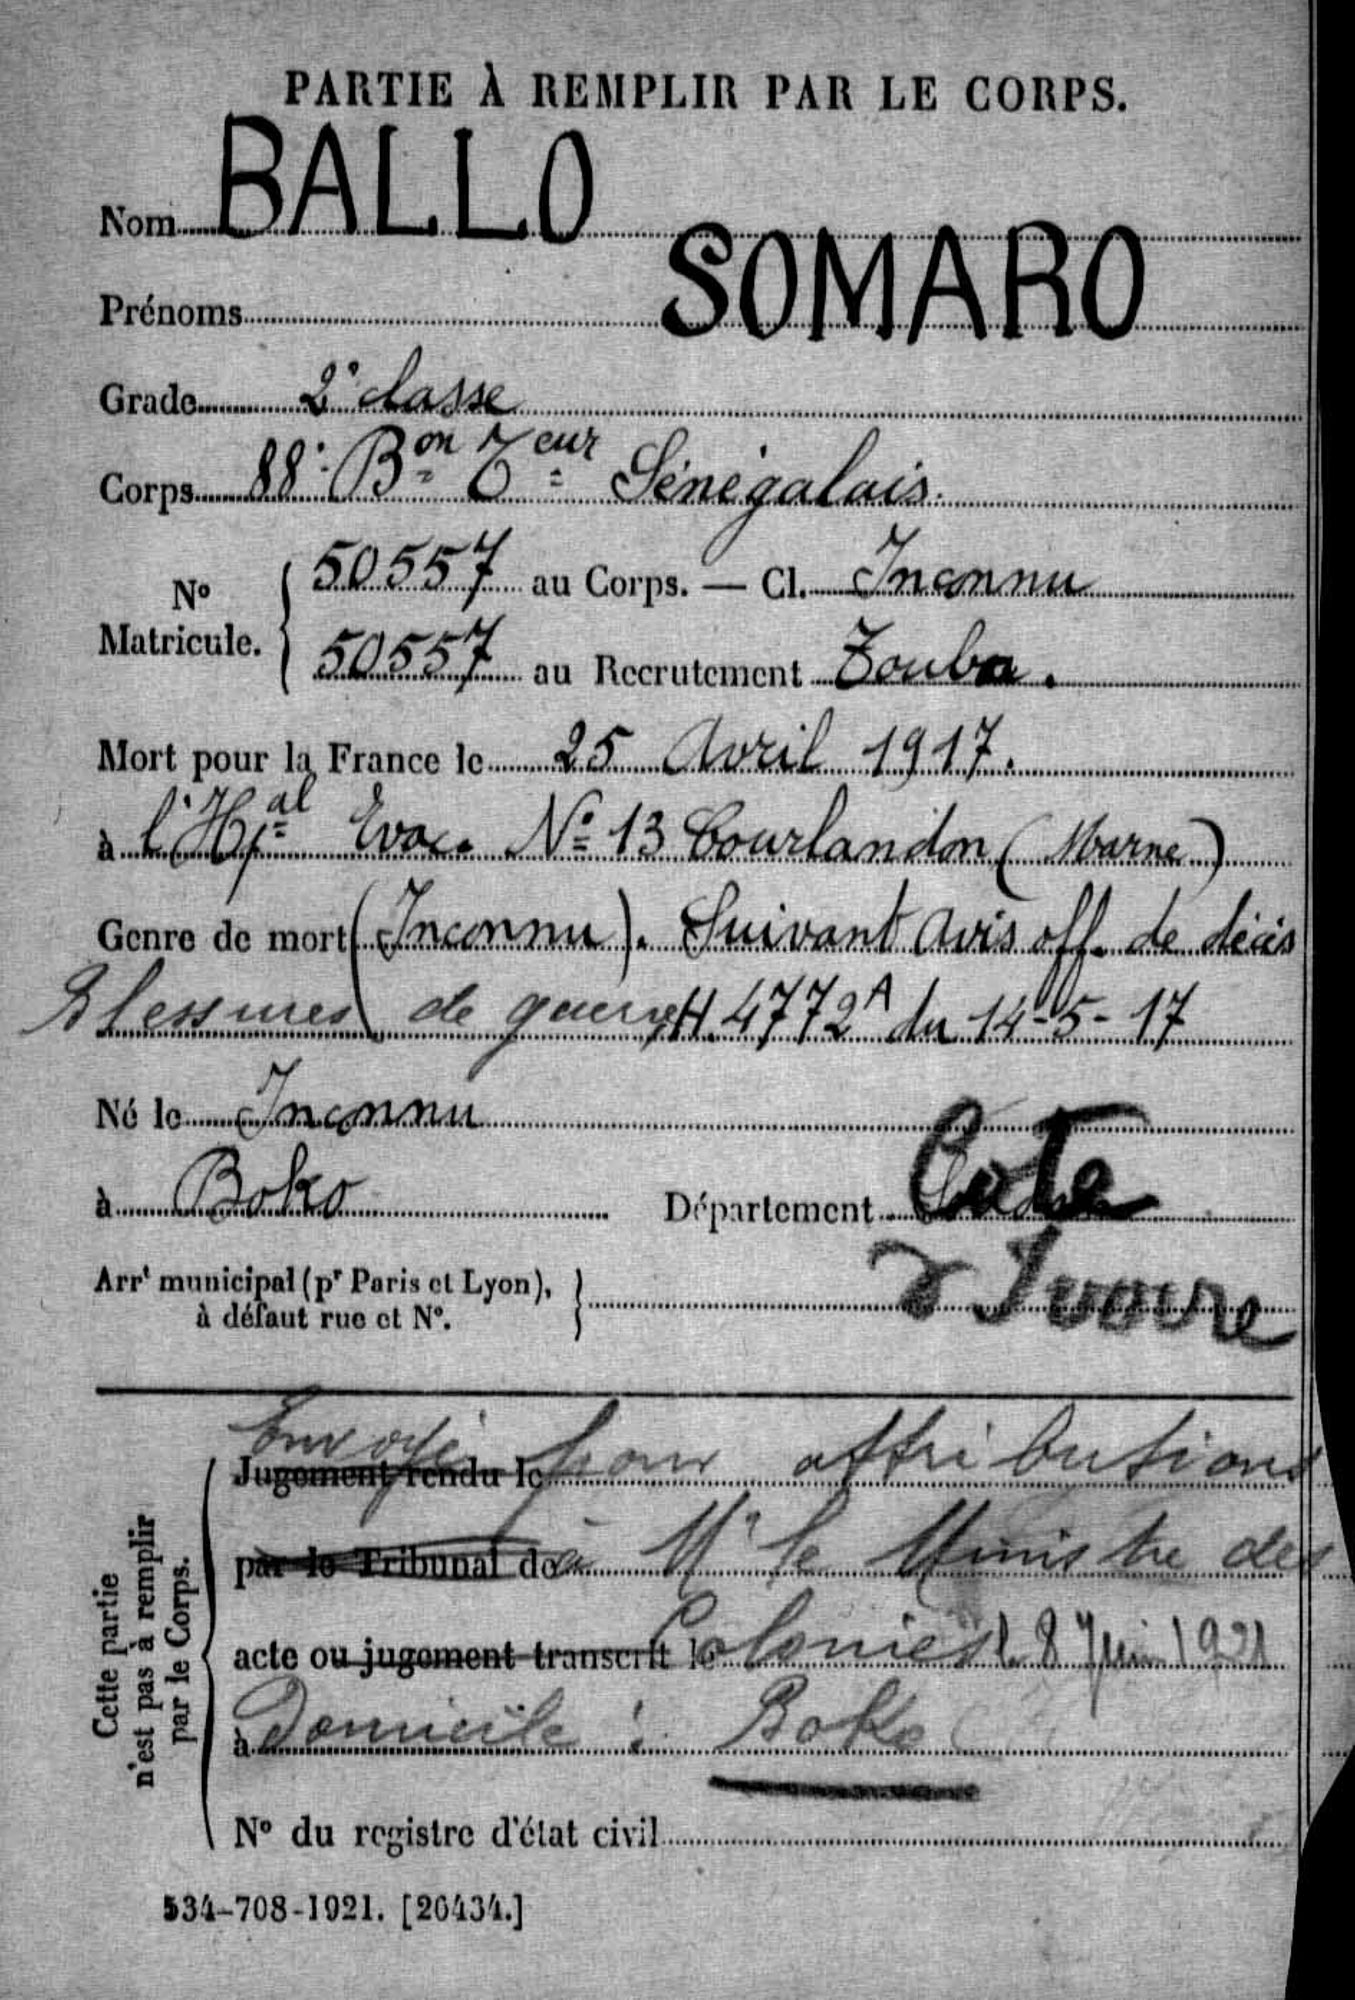 PARTIE À REMPLIR PAR LE CORPS.
Nom BALLO
Prénoms SOMARO
Grade 2e classe
Corps 88e Bon Teur Sénégalais.
No Matricule. { 50557 au Corps. — Cl. Inconnu
50557 au Recrutement Touba.
Mort pour la France le 25 Avril 1917.
à l'Hpal Evac. No 13 Courlandon (Marne)
Genre de mort (Inconnu). Suivant avis off. de décès
Blessures de guerre H. 4772A du 14-5-17
Né le Inconnu
à Boko Département Cote
d Ivoire
Arrt municipal (pr Paris et Lyon), à défaut rue et No. }
Cette partie n'est pas à remplir par le Corps.
Envoyé pour attributions
Jugement rendu le
par le Tribunal de à Mr le Ministre des
acte ou jugement transcrit le Colonies le 8 Juin 1921
à Domicile : Boko
No du registre d'état civil
534-708-1921. [26434.]